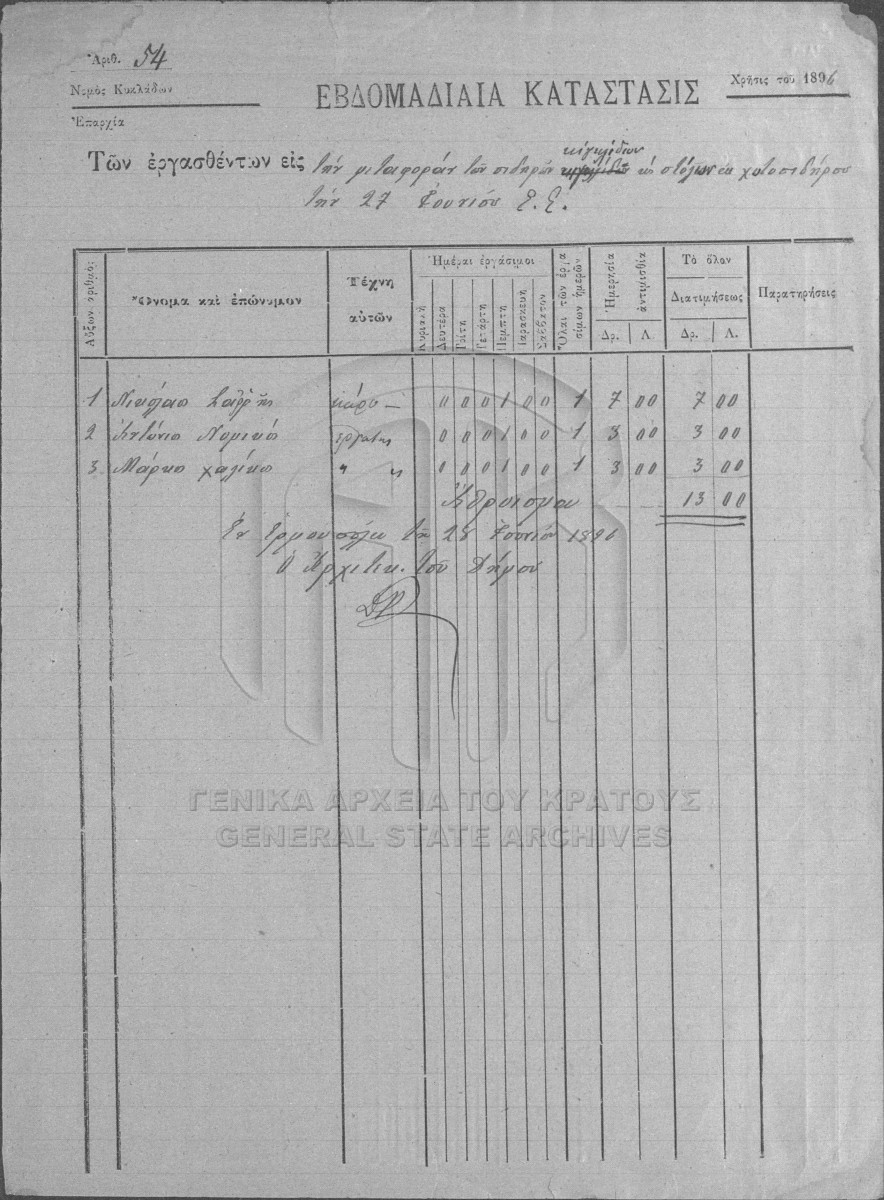 Ἀριθ. 54
Νομὸς Κυκλάδων
Ἐπαρχία
ΕΒΔΟΜΑΔΙΑΙΑ ΚΑΤΑΣΤΑΣΙΣ
Χρῆσις τοῦ 1896
Τῶν ἐργασθέντων εἰς τὴν μεταφορὰν τῶν σιδηρῶν κιγκλίδων
τὴν 27 Ἰουνίου Ε.Ε.
Αὔξων. ἀριθμὸς
Ὄνομα καὶ ἐπώνυμον
Τέχνη αὐτῶν
Ἡμέραι ἐργάσιμοι
Κυριακὴ
Δευτέρα
Τρίτη
Τετάρτη
Πέμπτη
Παρασκευὴ
Σάββατον
Ὅλαι τῶν ἐργασίμων ἡμερῶν
Ἡμερησία ἀντιμισθία
Δρ. Λ.
Τὸ ὅλον
Διατιμήσεως
Δρ. Λ.
Παρατηρήσεις
1 Νικόλαο 0 0 0 1 0 0 1 7 00 7 00
2 Ἀντώνιο Νομικό ἐργάτης 0 0 0 1 0 0 1 3 00 3 00
3 Μάρκο Χαλίκιο " " 0 0 0 1 0 0 1 3 00 3 00
Ἄθροισμα 13 00
Ἐν Ἑρμουπόλει τῇ 28 Ἰουνίου 1896
Ὁ Ἀρχιτεκ. τοῦ Δήμου
ΓΕΝΙΚΑ ΑΡΧΕΙΑ ΤΟΥ ΚΡΑΤΟΥΣ
GENERAL STATE ARCHIVES